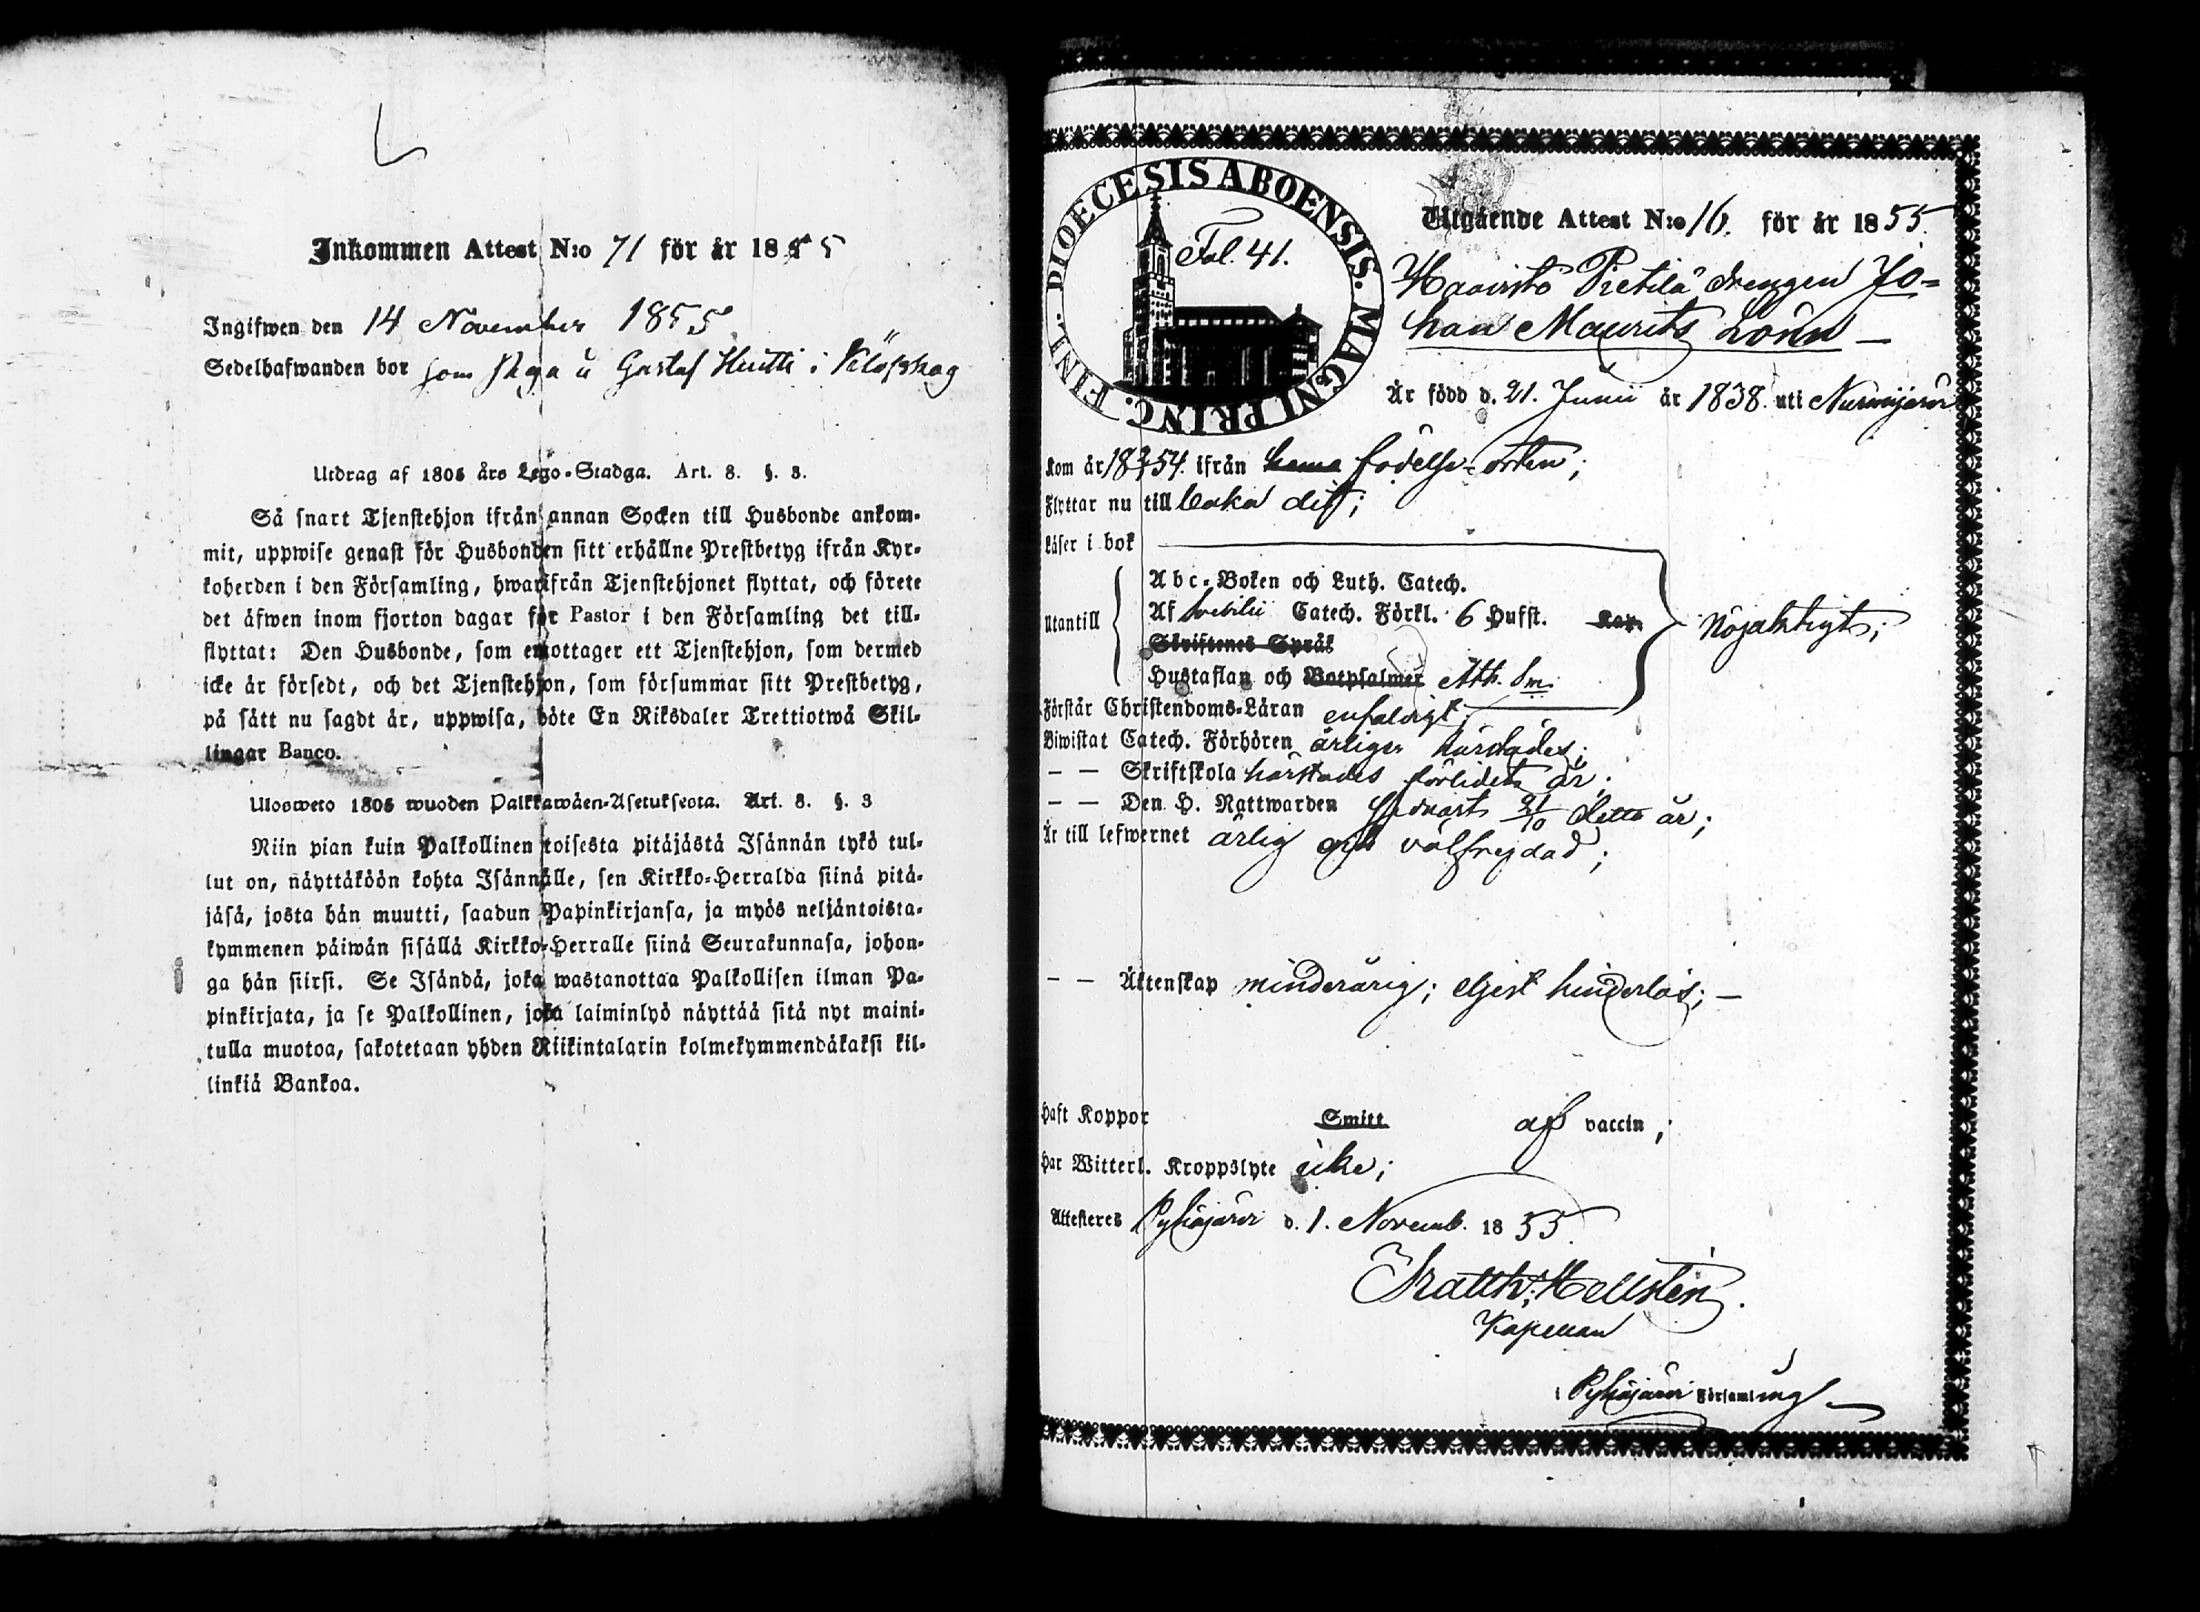 Inkommen Attest N:o 71 för år 1855
Ingifwen den 14 November 1855
Sedelhafwanden bor som Piga u Gustaf Huitti i Klöfskog
Utdrag af 1805 års Lego-Stadga. Art. 8. §. 3.
Så snart Tjenstehjon ifrån annan Socken till Husbonde ankom-
mit, uppwise genast för Husbonden sitt erhållne Prestbetyg ifrån Kyr-
koherden i den Församling, hwarifrån Tjenstehjonet flyttat, och förete
det äfwen inom fjorton dagar för Pastor i den Församling det till-
flyttat: Den Husbonde, som emottager ett Tjenstehjon, som dermed
icke är försedt, och det Tjenstehjon, som försummar sitt Prestbetyg,
på sätt nu sagdt är, uppwisa, böte En Riksdaler Trettiotwå Skil-
lingar Banco.
Ulosweto 1805 wuoden Palkkawäen-Asetuksesta. Art. 8. §. 3
Niin pian kuin Palkollinen toisesta pitäjästä Isännän tykö tul-
lut on, näyttäköön kohta Isännälle, sen Kirkko-Herralda siinä pitä-
jäsä, josta hän muutti, saadun Papinkirjansa, ja myös neljäntoista-
kymmenen päiwän sisällä Kirkko-Herralle siinä Seurakunnasa, johon-
ga hän siirsi. Se Isändä, joka wastanottaa Palkollisen ilman Pa-
pinkirjata, ja se Palkollinen, joka laiminlyö näyttää sitä nyt maini-
tulla muotoa, sakotetaan yhden Riikintalarin kolmekymmendäkaksi kil-
linkiä Bankoa.
DIOECESIS ABOENSIS. MAGNI PRINC. FINL.
Fol. 41.
Utgående Attest N:o 16. för år 1855.
Haavisto Pietilä drengen Jo=
han Maurits Lönn —
Är född d. 21. Junii år 1838. uti Nurmijärvi
Kom år 1854. ifrån födelse-orten;
Flyttar nu till baka dit;
Läser i bok
Utantill
Abc-Boken och Luth. Catech.
Af Svebilii Catech. Förkl. 6 Hufst. Kap.
Skriftenes Språk
Hustaflan och Botpsalmer Ath. Sm.
nöjaktigt;
Förstår Christendoms-Läran enfaldigt;
Biwistat Catech. Förhören årligen härstädes;
— — Skriftskola härstädes förlidet år;
— — Den H. Nattwarden sednast 21/10 detta år;
Är till lefwernet ärlig och välfrejdad;
— — Äktenskap minderårig; eljest hinderlös; —
Haft Koppor Smitt af vaccin;
Har Witterl. Kroppslyte icke;
Attesteres Pyhäjärvi d. 1. Novemb. 1855.
Matth: Hellstén.
Kapellan
i Pyhäjärvi Församling